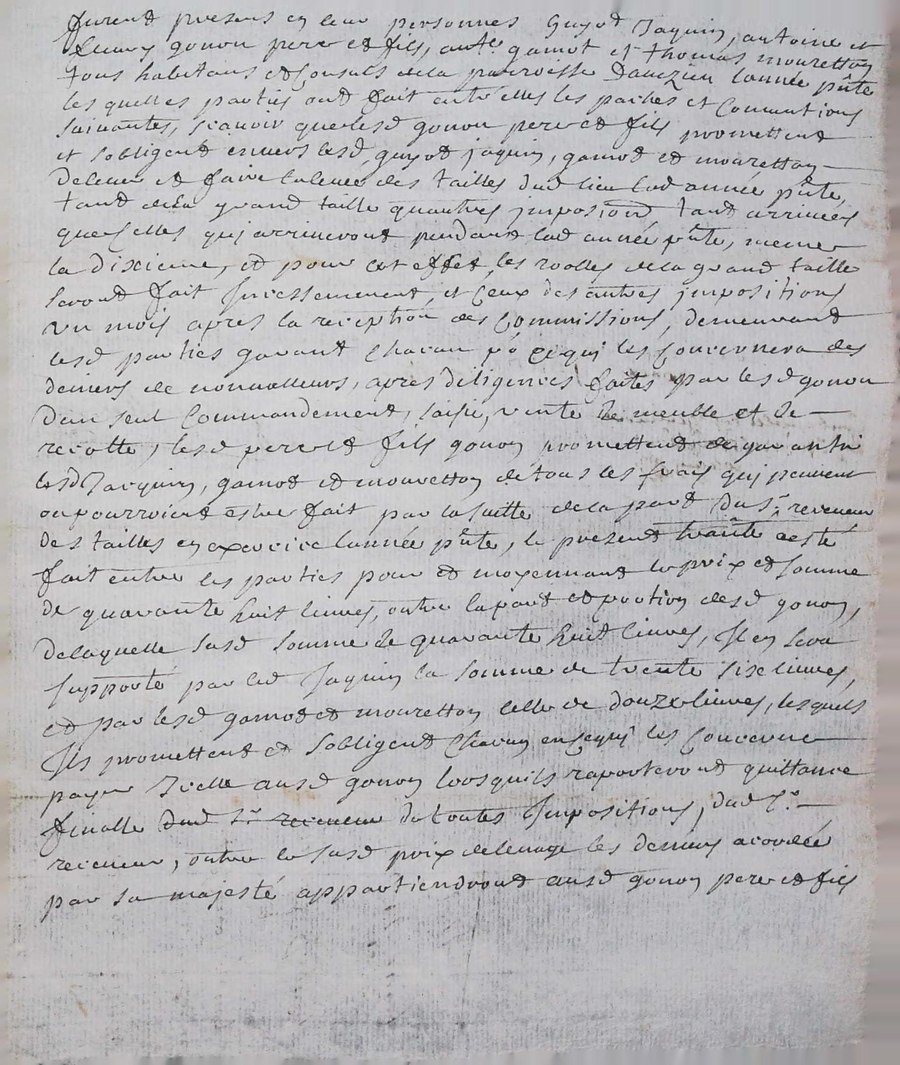 furent presens en leur personnes Guyot Jaquin, antoine et
fleury gonon pere et fils, ante gamot et thomas mouretton
tous habitans et Consuls de la parroisse Dauezieu lannée pnte
les quelles parties ont fait entre elles les paches et Conuentions
suiuantes, scauoir que lesd gonon pere et fils promettent
et sobligent enuers lesd guyot jaquin, gamot et mouretton
deleuer et faire laleuee des tailles dud lieu lad année pnte,
tant de la grand taille quautres jmposions tant arriuées
que celles quj arriueront pendant lad année pnte, mesme
la dixieme, et pour cet effet les roolles de la grand taille
seront fait Jncessemment, et Ceux des autres jmpositions
vn mois apres la reception des Commissions, demeurant
lesd parties garant Chacun po ce quj les Concernera des
deniers de nonualleurs, apres diligences faites par lesd gonon
dun seul Commandement, saisie, vente de meuble et de
recolte, lesd pere et fils gonon promettent de garantir
lesd Jacquin, gamot et mouretton de tous les frais quj peuuent
ou pourroient estre fait par la suitte de la part du sr receueur
des tailles en exercice lannée pnte, le present traitté a esté
fait entre les parties pour et moyennant le prix et somme
de quarante huit liures, outre la part et portion desd gonon,
de laquelle susd somme de quarante huit liures, Jl en sera
supporté par led Jaquin la somme de trente six liures,
et par lesd gamot et mouretton celle de douze liures, lesquels
Jls promettent et sobligent Chacun en ce quj les Concerne
payer Jcelle ausd gonon lorsquils raporteront quittance
finalle dud sr receueur de toutes Jmpositions, dud sr
receueur, outre le susd prix de leuage les deniers acordée
par sa majesté appartiendront ausd gonon pere et fils